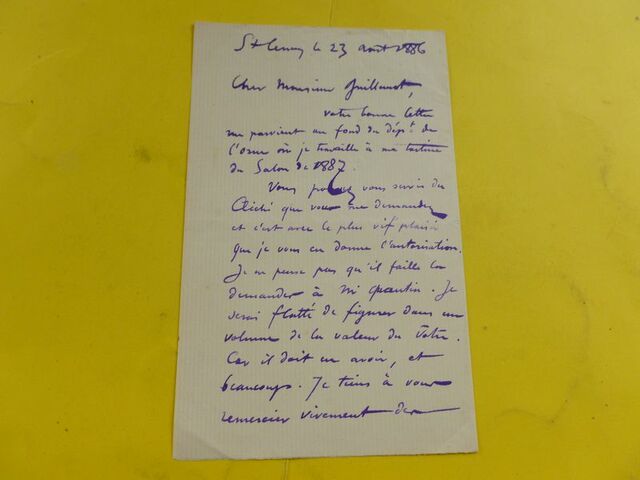 le 23 août 1886
Cher Monsieur
votre bonne lettre
me parvient au fond du dépt de
l'Orne où je travaille à ma tartine
du Salon de 1887.
Vous pouvez vous servir du
Cliché que vous me demandez
et c'est avec le plus vif plaisir
que je vous en donne l'autorisation.
Je ne pense pas qu'il faille la
demander à Mr Quantin. Je
serai flatté de figurer dans un
volume de la valeur du Votre.
Car il doit en avoir, et
beaucoup. Je tiens à vous
remercier vivement des